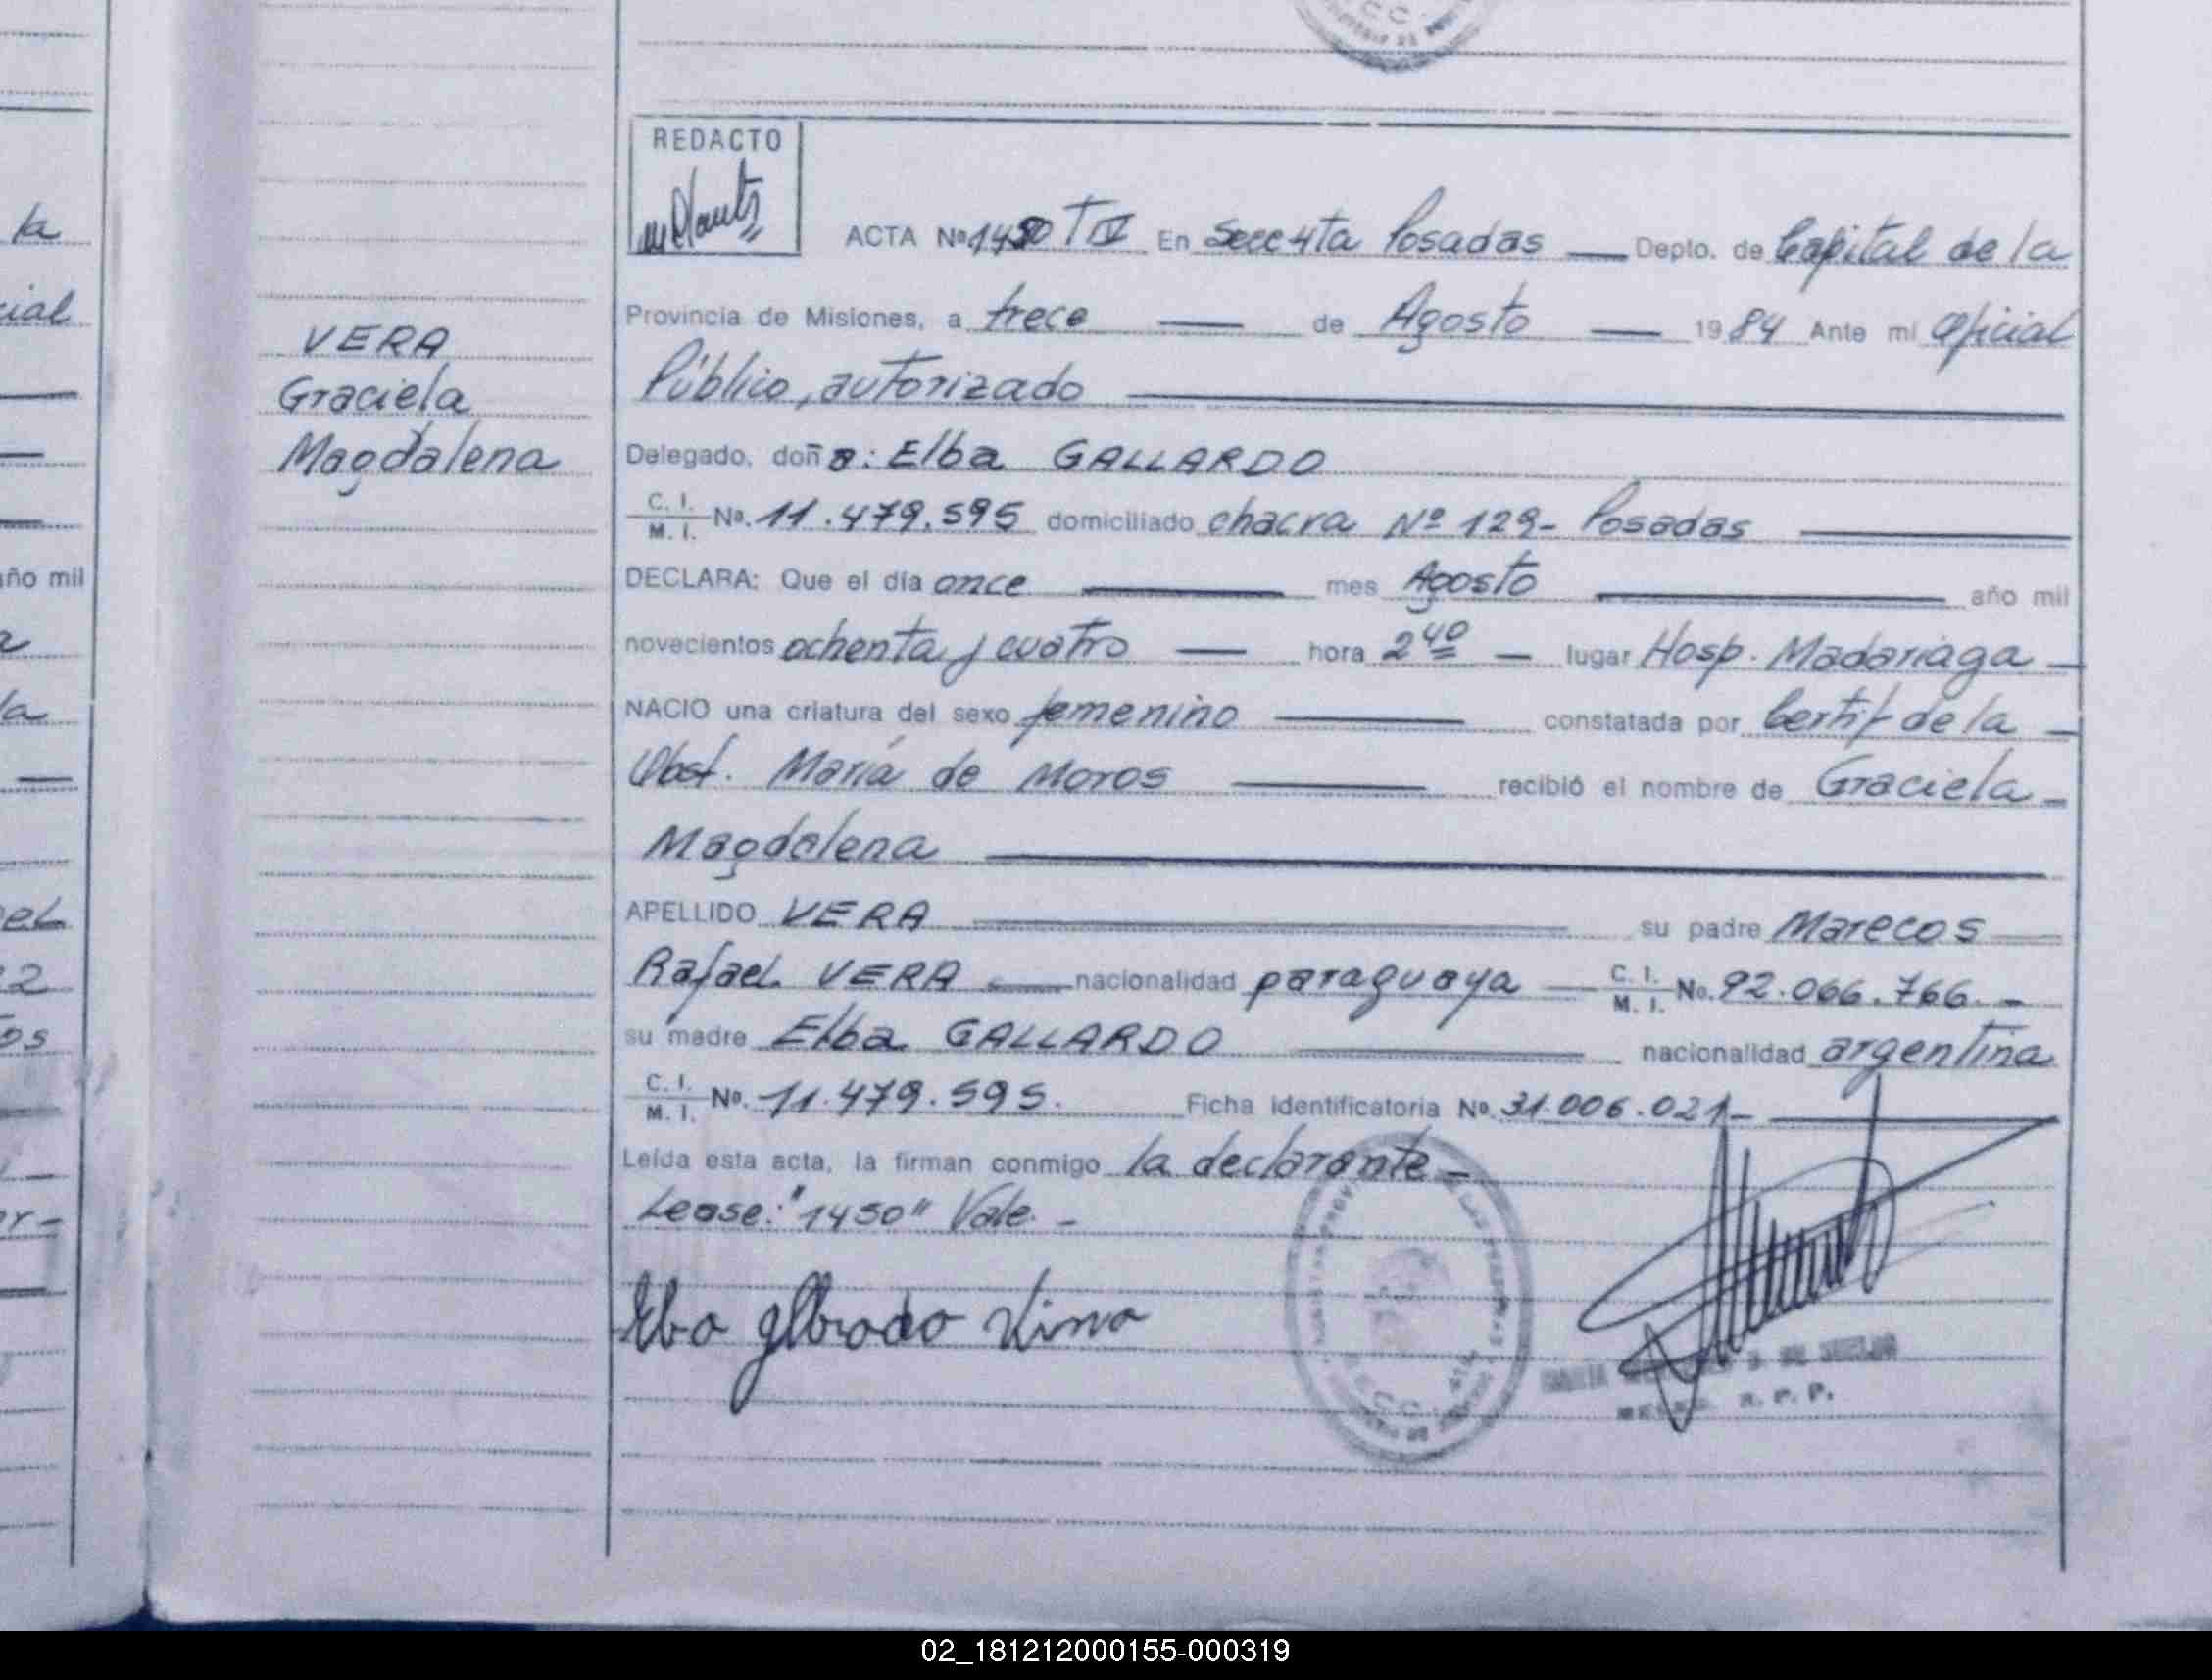 la
cial
año mil
a
la
el
2
os
r-
VERA
Graciela
Magdalena
REDACTO
ACTA Nº 1450 T IV En Secc 4ta Posadas — Depto. de Capital de la
Provincia de Misiones, a trece — de Agosto — 1984 Ante mi Oficial
Público, autorizado —
Delegado, doña: Elba GALLARDO
C. I.
M. I. No. 11.479.595 domiciliado chacra Nº 129- Posadas —
DECLARA: Que el día once — mes Agosto — año mil
novecientos ochenta y cuatro — hora 2 40 — lugar Hosp. Madariaga —
NACIO una criatura del sexo femenino — constatada por Certif de la —
Obst. María de Moros — recibió el nombre de Graciela —
Magdalena —
APELLIDO VERA — su padre Marecos —
Rafael VERA — nacionalidad paraguaya — C. I.
M. I. No. 92.066.766. -
su madre Elba GALLARDO — nacionalidad argentina
C. I.
M. I. No. 11.479.595. Ficha identificatoria No. 31.006.021- —
Leída esta acta, la firman conmigo la declarante -
Lease: "1450" Vale. -
R. P. P.
02_181212000155-000319